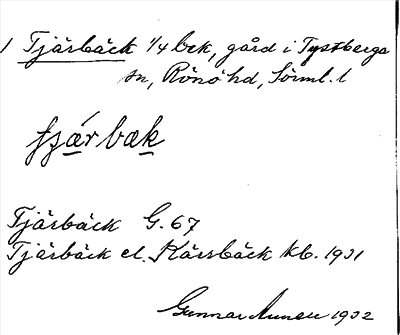 1 Tjärbäck 1/4 bek, gård i Tystberga
sn, Rönö hd, Sörml. l
Tjärbäck G. 67
Tjärbäck el. Kärrbäck kb. 1931
Gunnar 1932